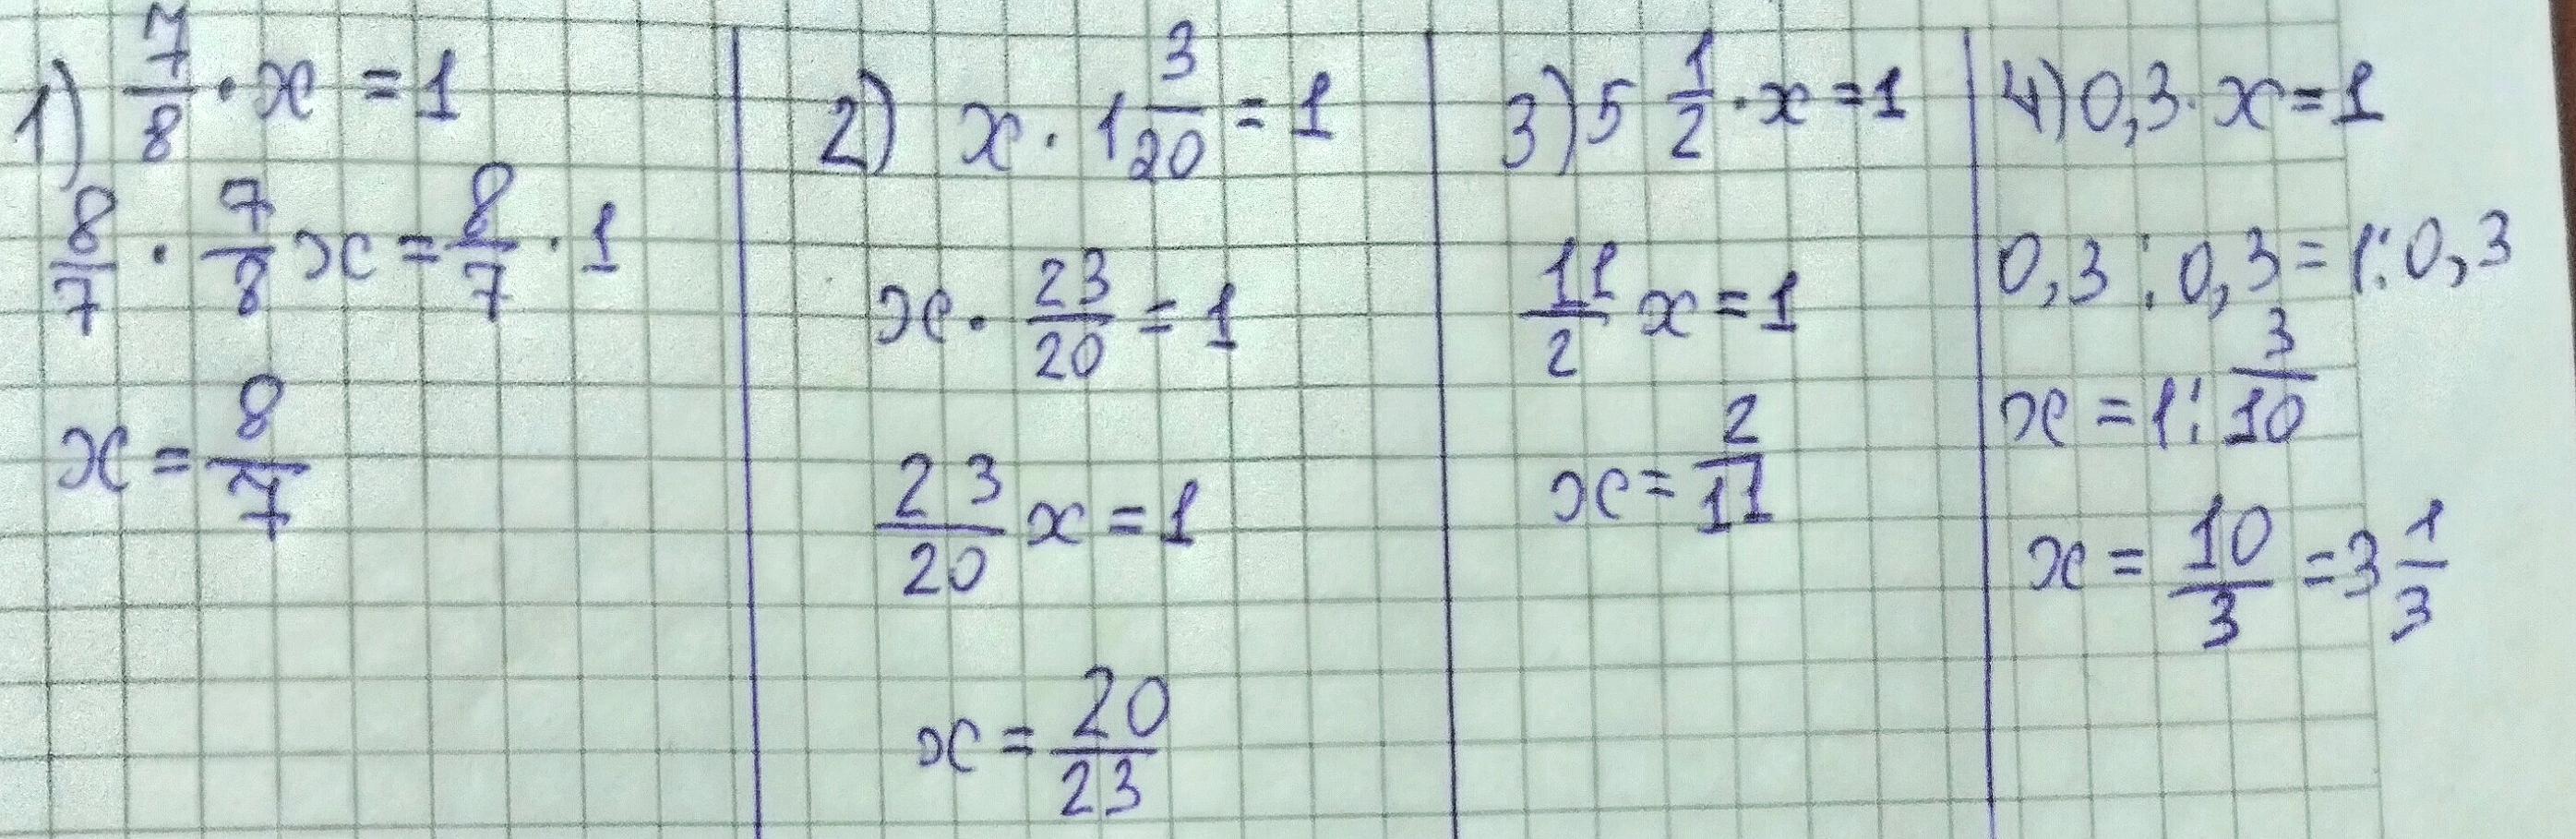 1) 7/8 · x = 1
8/7 · 7/8 x = 8/7 · 1
x = 8/7
2) x · 1 3/20 = 1
x · 23/20 = 1
23/20 x = 1
x = 20/23
3) 5 1/2 · x = 1
11/2 x = 1
x = 2/11
4) 0,3 · x = 1
0,3 : 0,3 = 1 : 0,3
x = 1 : 3/10
x = 10/3 = 3 1/3